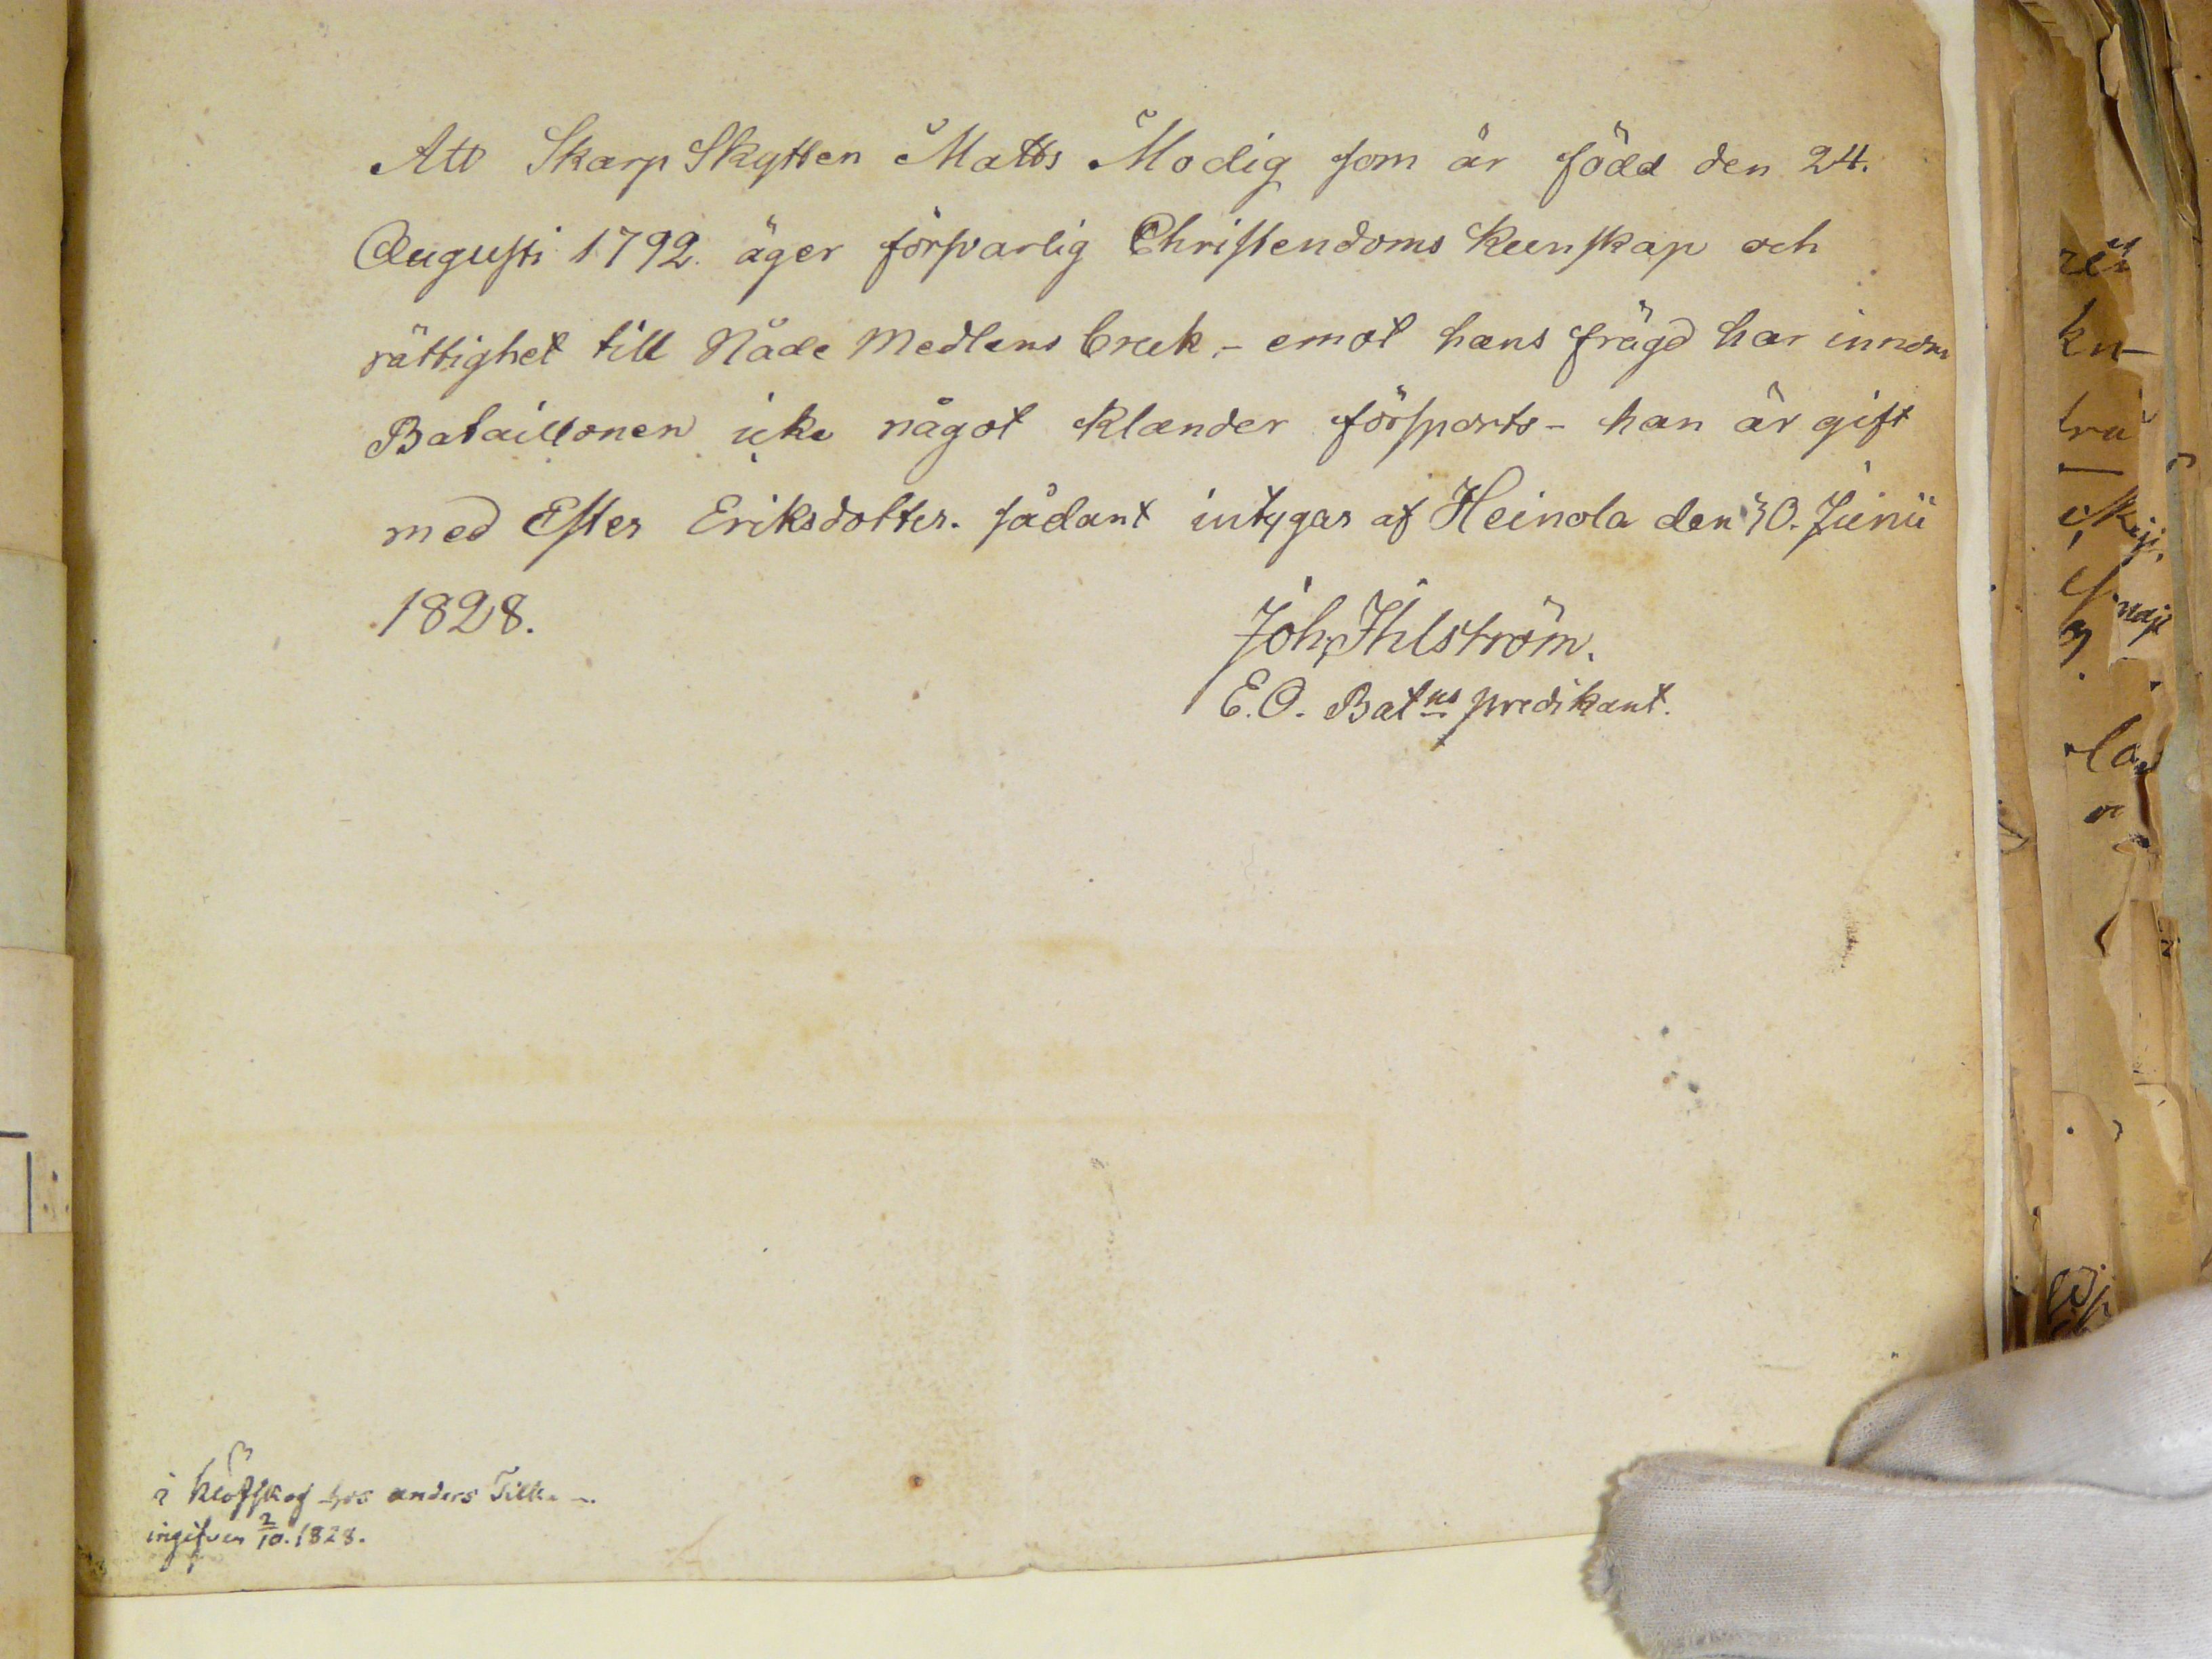 Att Skarp Skytten Matts Modig som är född den 24.
Augusti 1792. äger försvarlig Christendoms Kunskap och
rättighet till Nåde Medlens bruk, - emot hans frägd har innom
Bataillonen icke något klander försports - han är gift
med Ester Eriksdotter. sådant intygas af Heinola den 30. Junii
1828.
Joh. Ihlström.
E.O. Batns predikant.
i Klöfskog hos anders Tilk
ingifven 2/10. 1828.